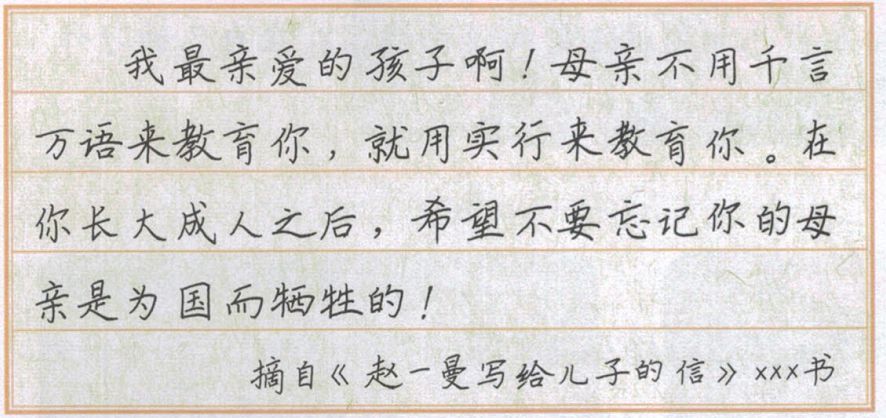 我最亲爱的孩子啊！母亲不用千言
万语来教育你，就用实行来教育你。在
你长大成人之后，希望不要忘记你的母
亲是为国而牺牲的！
摘自《赵一曼写给儿子的信》×××书